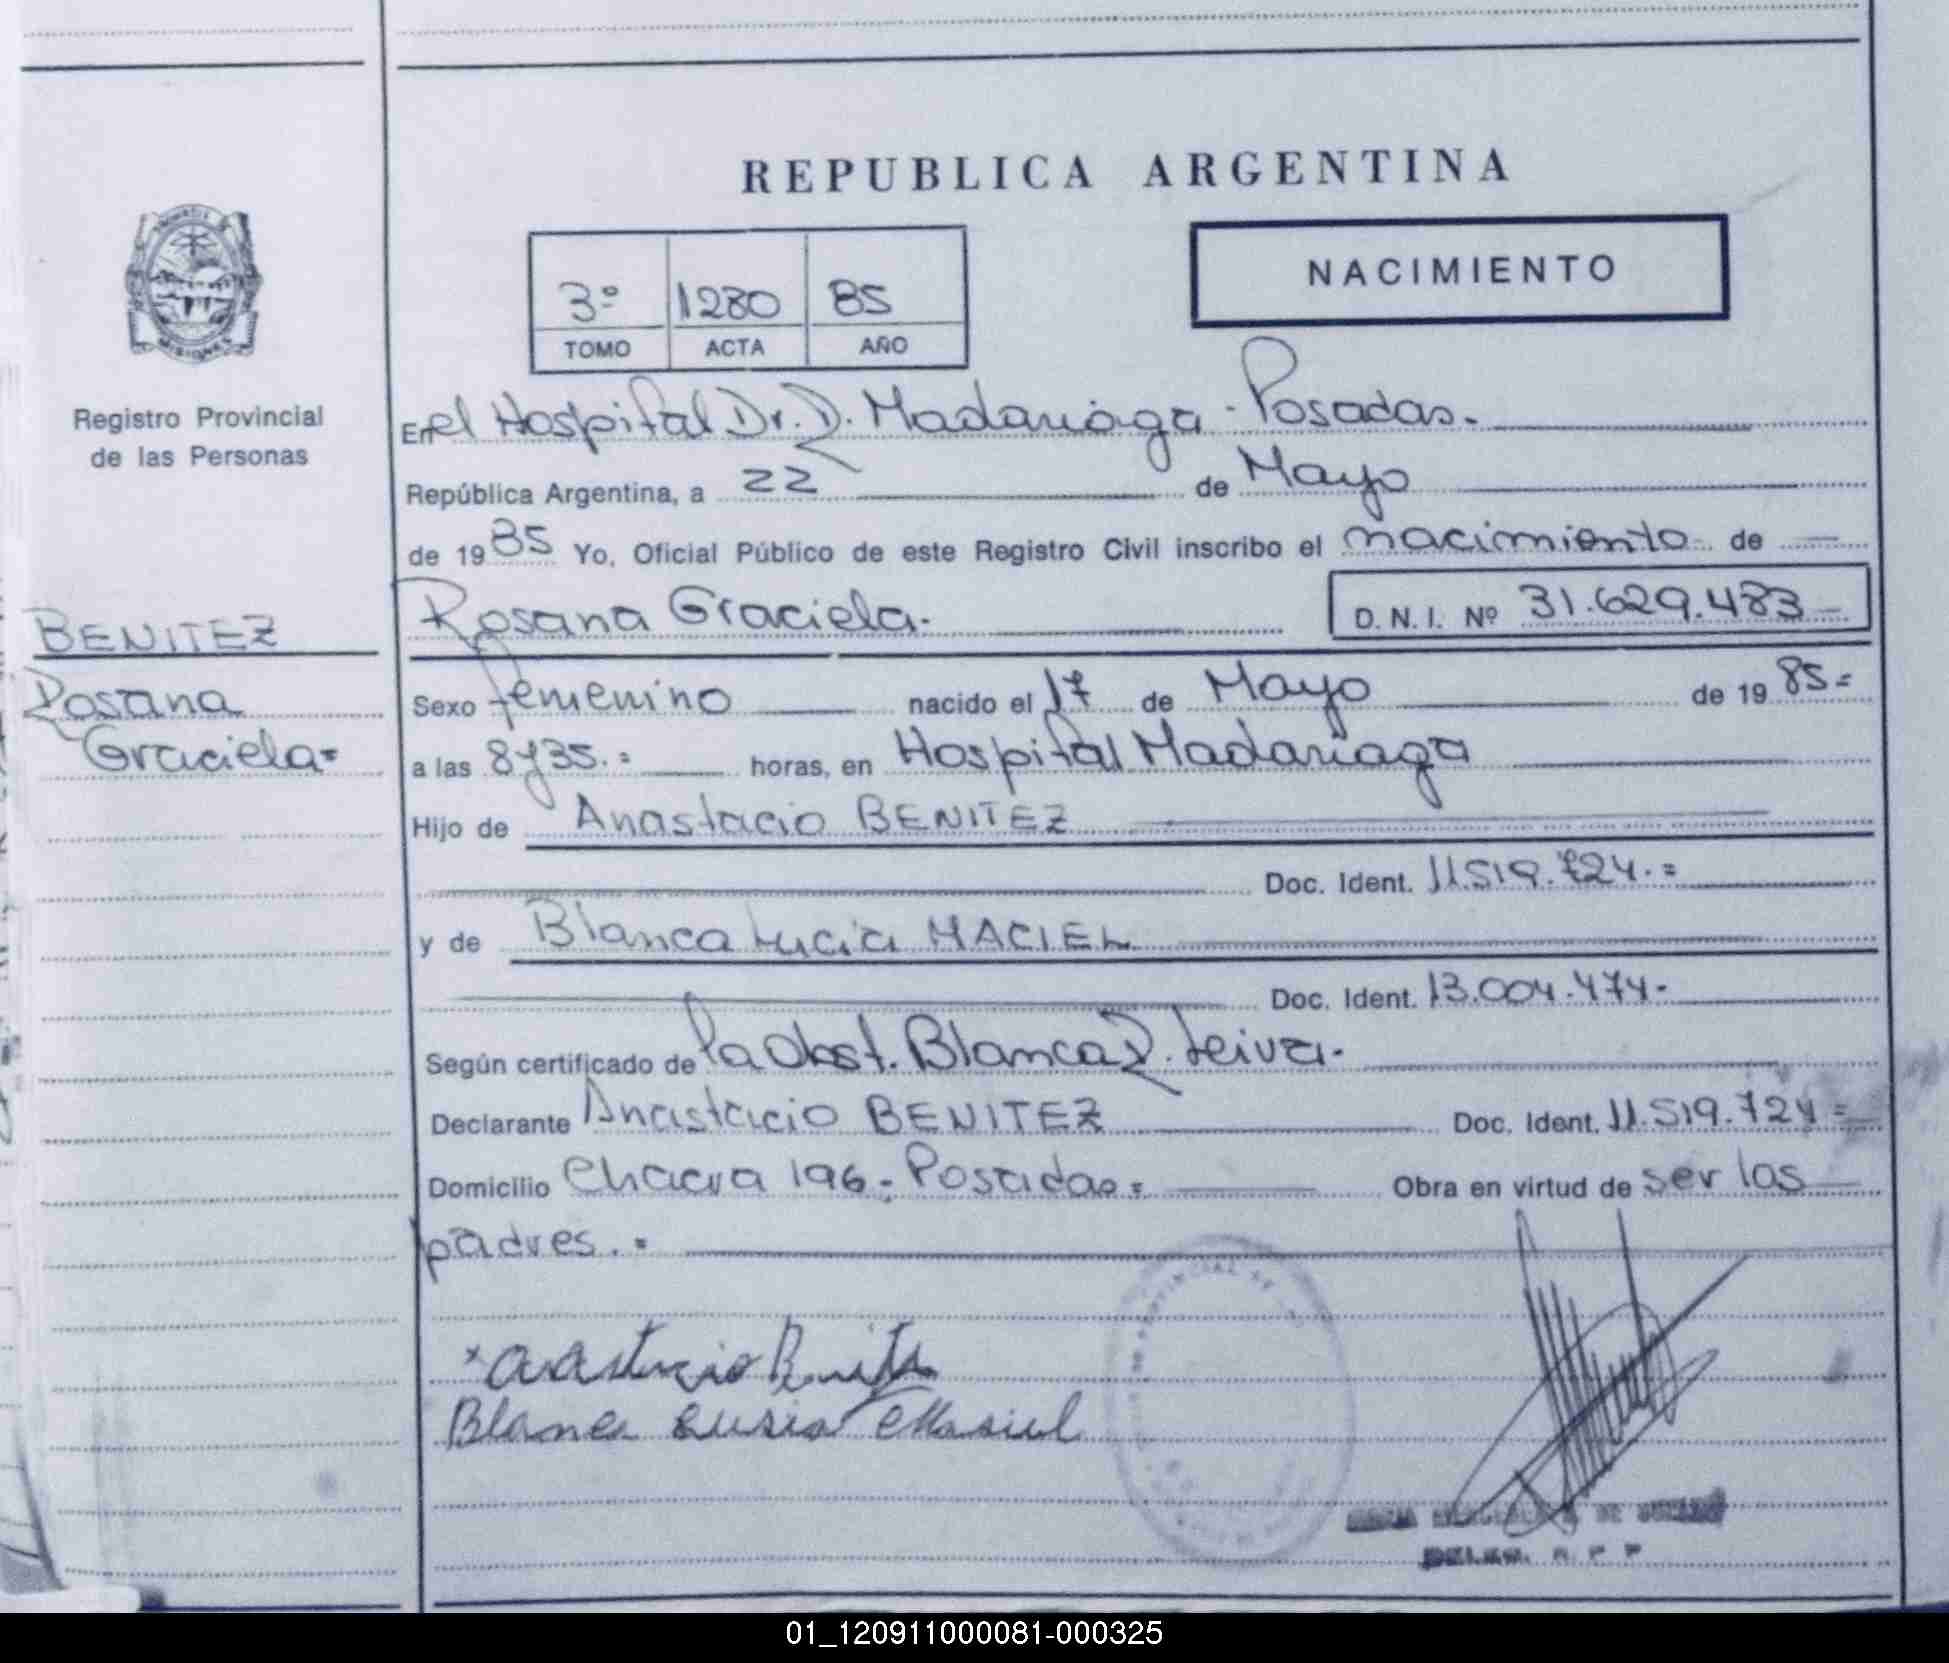 REPUBLICA ARGENTINA
NACIMIENTO
3º 1280 85
TOMO ACTA AÑO
MISIONES
Registro Provincial
de las Personas
En el Hospital Dr. R. Madariaga - Posadas.
República Argentina, a 22 de Mayo
de 1985 Yo, Oficial Público de este Registro Civil inscribo el nacimiento de
BENITEZ
Rosana
Graciela=
Rosana Graciela. D. N. I. Nº 31.629.483
Sexo femenino nacido el 17 de Mayo de 1985=
a las 8y35.= horas, en Hospital Madariaga
Hijo de Anastacio BENITEZ
Doc. Ident. 11.519.724.=
y de Blanca Lucia MACIEL
Doc. Ident. 13.004.474.
Según certificado de la Obst. Blanca R. Leiva.
Declarante Anastacio BENITEZ Doc. Ident. 11.519.724=
Domicilio Chacra 196.- Posadas= Obra en virtud de ser los
padres.=
Anastacio Benitez
Blanca Lusia Masiel
DE
01_120911000081-000325